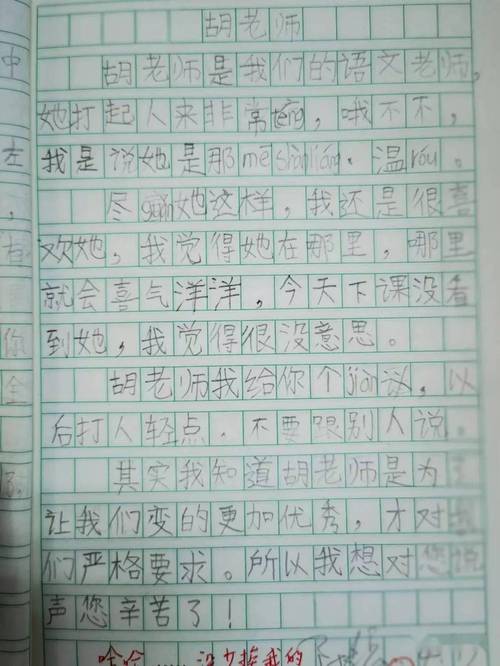 胡老师
胡老师是我们的语文老师,
她打起人来非常téng,哦不不,
我是说她是那mē shànliáng.温róu。
尽guǎn她这样,我还是很喜
欢她,我觉得她在那里,哪里
就会喜气洋洋,今天下课没看
到她,我觉得很没意思。
胡老师我给你个jiàn议,以
后打人轻点.不要跟别人说。
其实我知道胡老师是为了
让我们变的更加优秀,才对我
们严格要求。所以我想对您说
声您辛苦了!
哈哈……没少挨我的
中
左
,
有
你
全